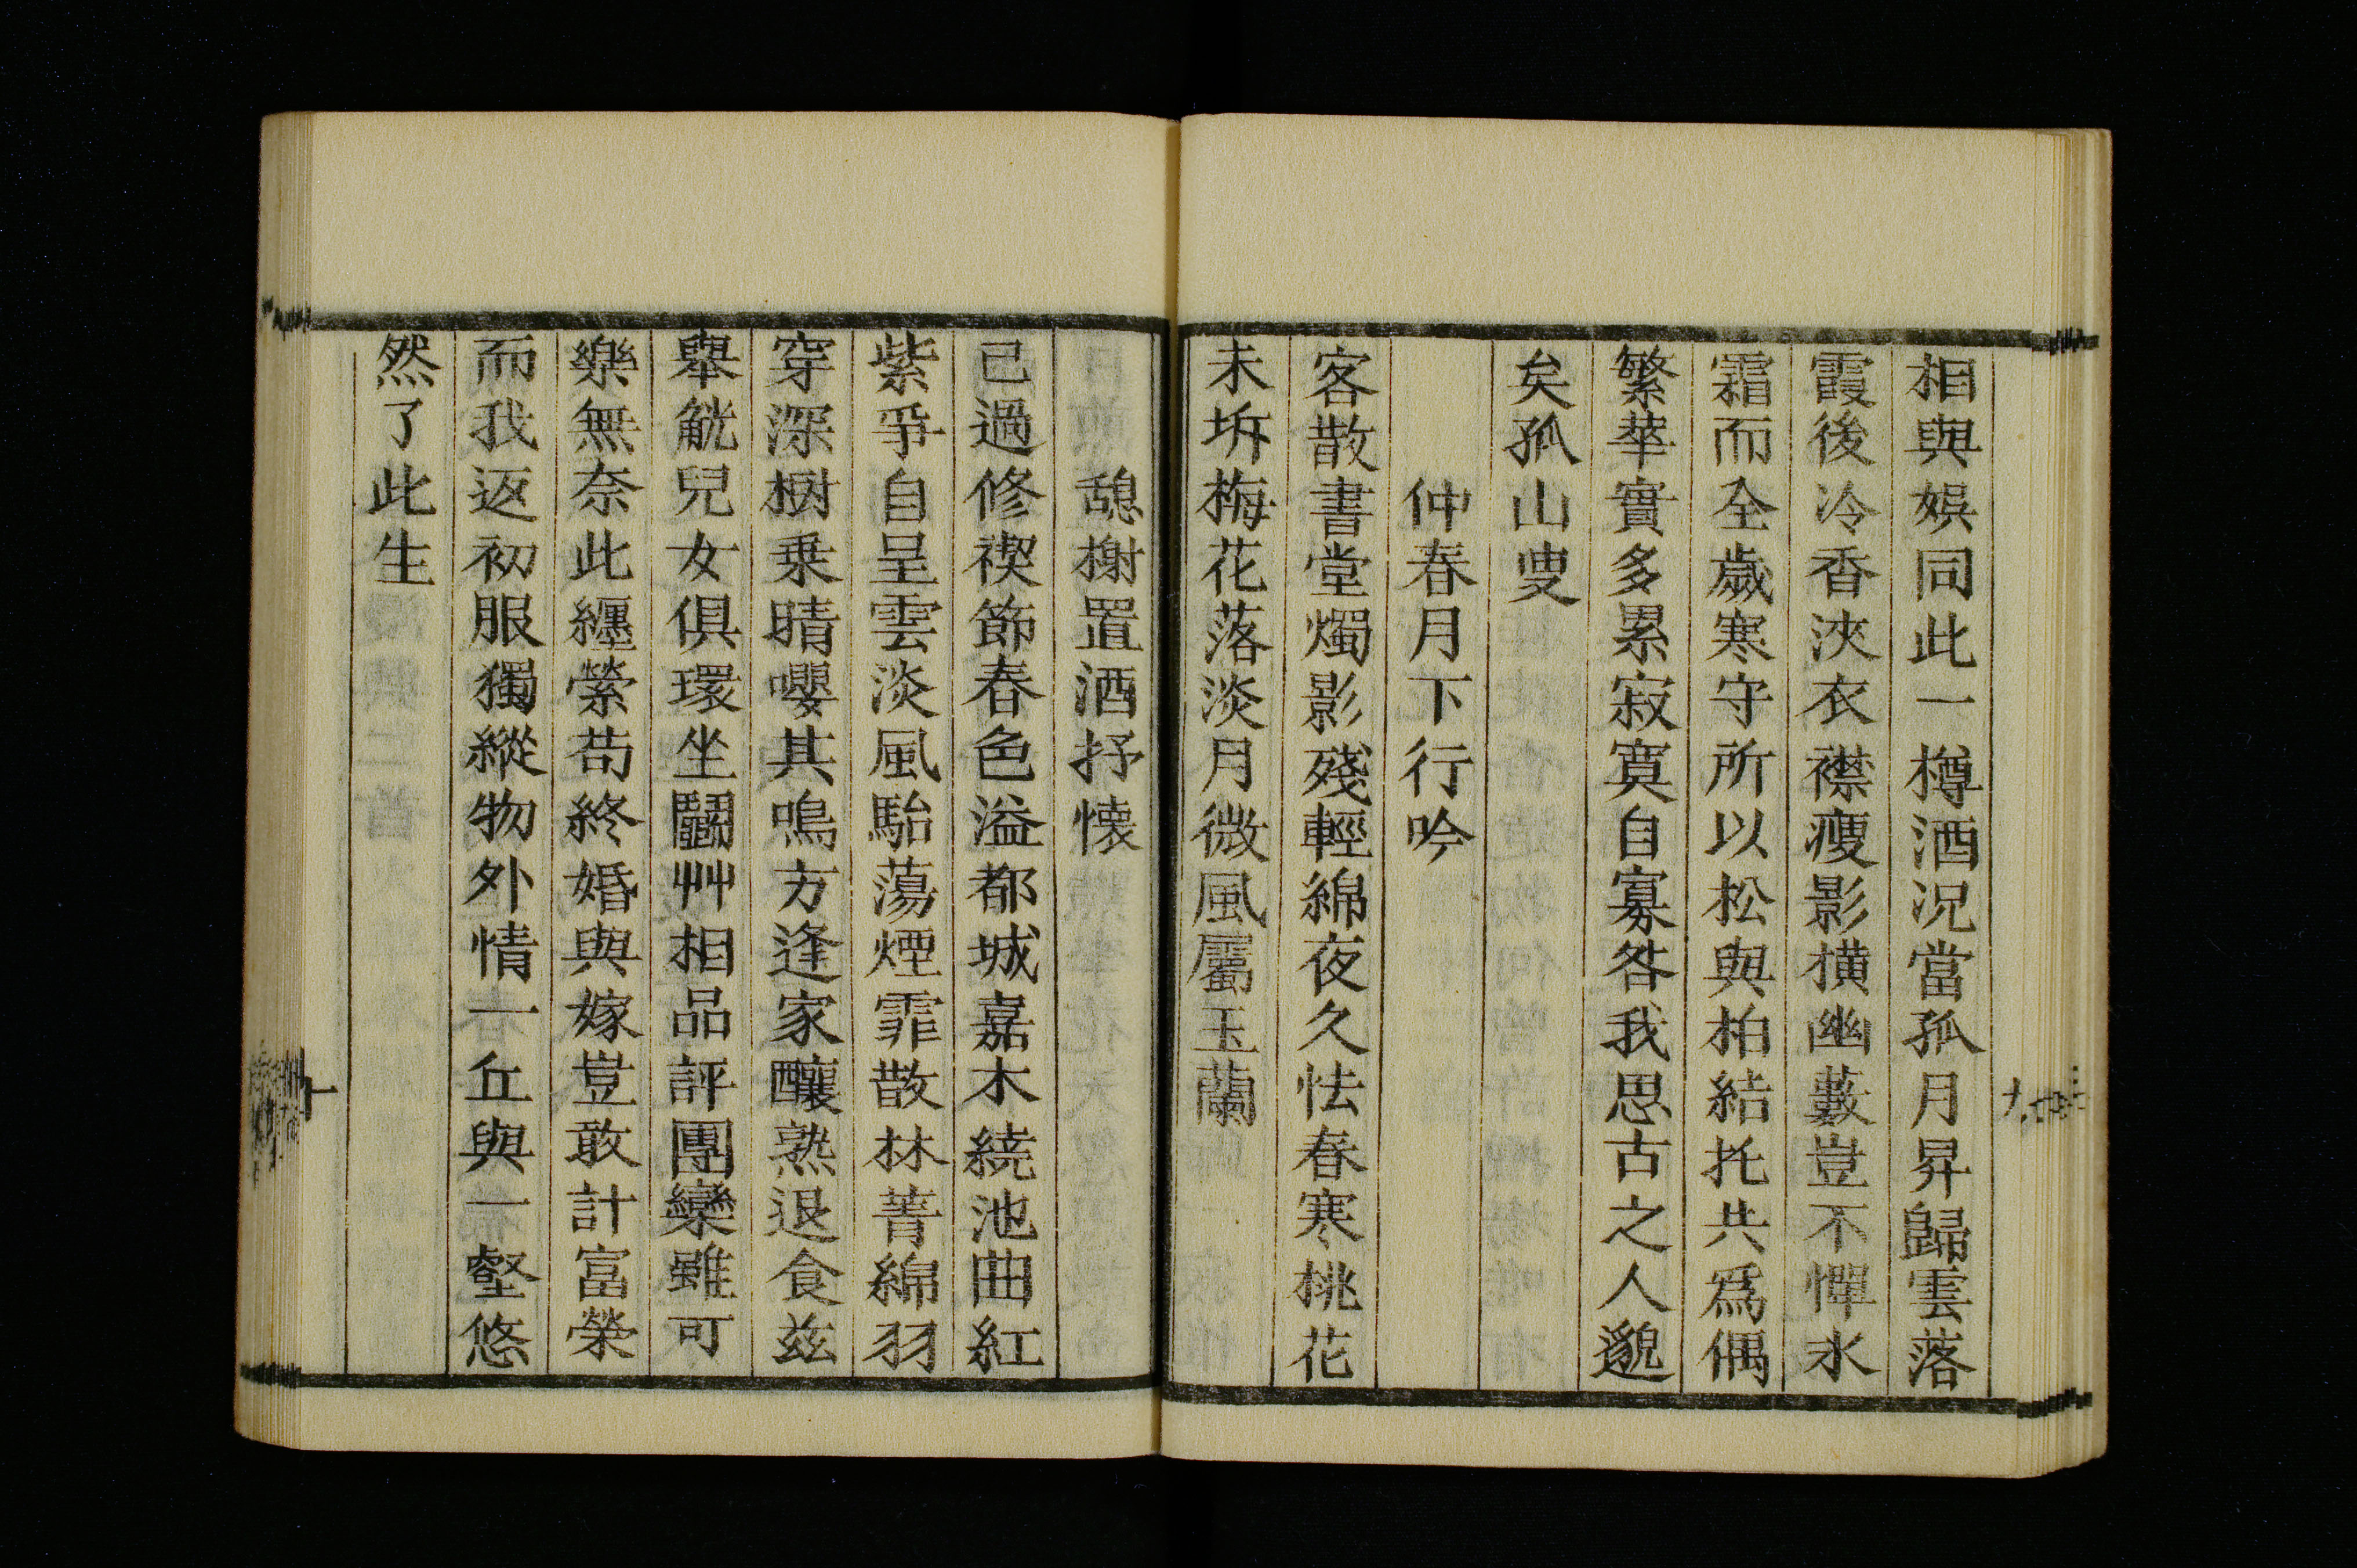 相與娯同此一樽酒況當孤月昇歸雲落
霞後冷香浹衣襟瘦影横幽藪豈不憚氷
霜而全歲寒守所以松與柏結托共爲偶
繁華實多累寂寞自寡咎我思古之人邈
矣孤山叟
仲春月下行吟
客散書堂燭影殘輕綿夜久怯春寒桃花
未坼梅花落淡月微風屬玉蘭
憩榭置酒抒懷
已過修禊節春色溢都城嘉木繞池曲紅
紫爭自呈雲淡風駘蕩煙霏散林菁綿羽
穿深樹乘晴嚶其鳴方逢家釀熟退食茲
舉觥兒女俱環坐鬪艸相品評團欒雖可
樂無奈此纏縈苟終婚與嫁豈敢計富榮
而我返初服獨縱物外情一丘與一壑悠
然了此生
十